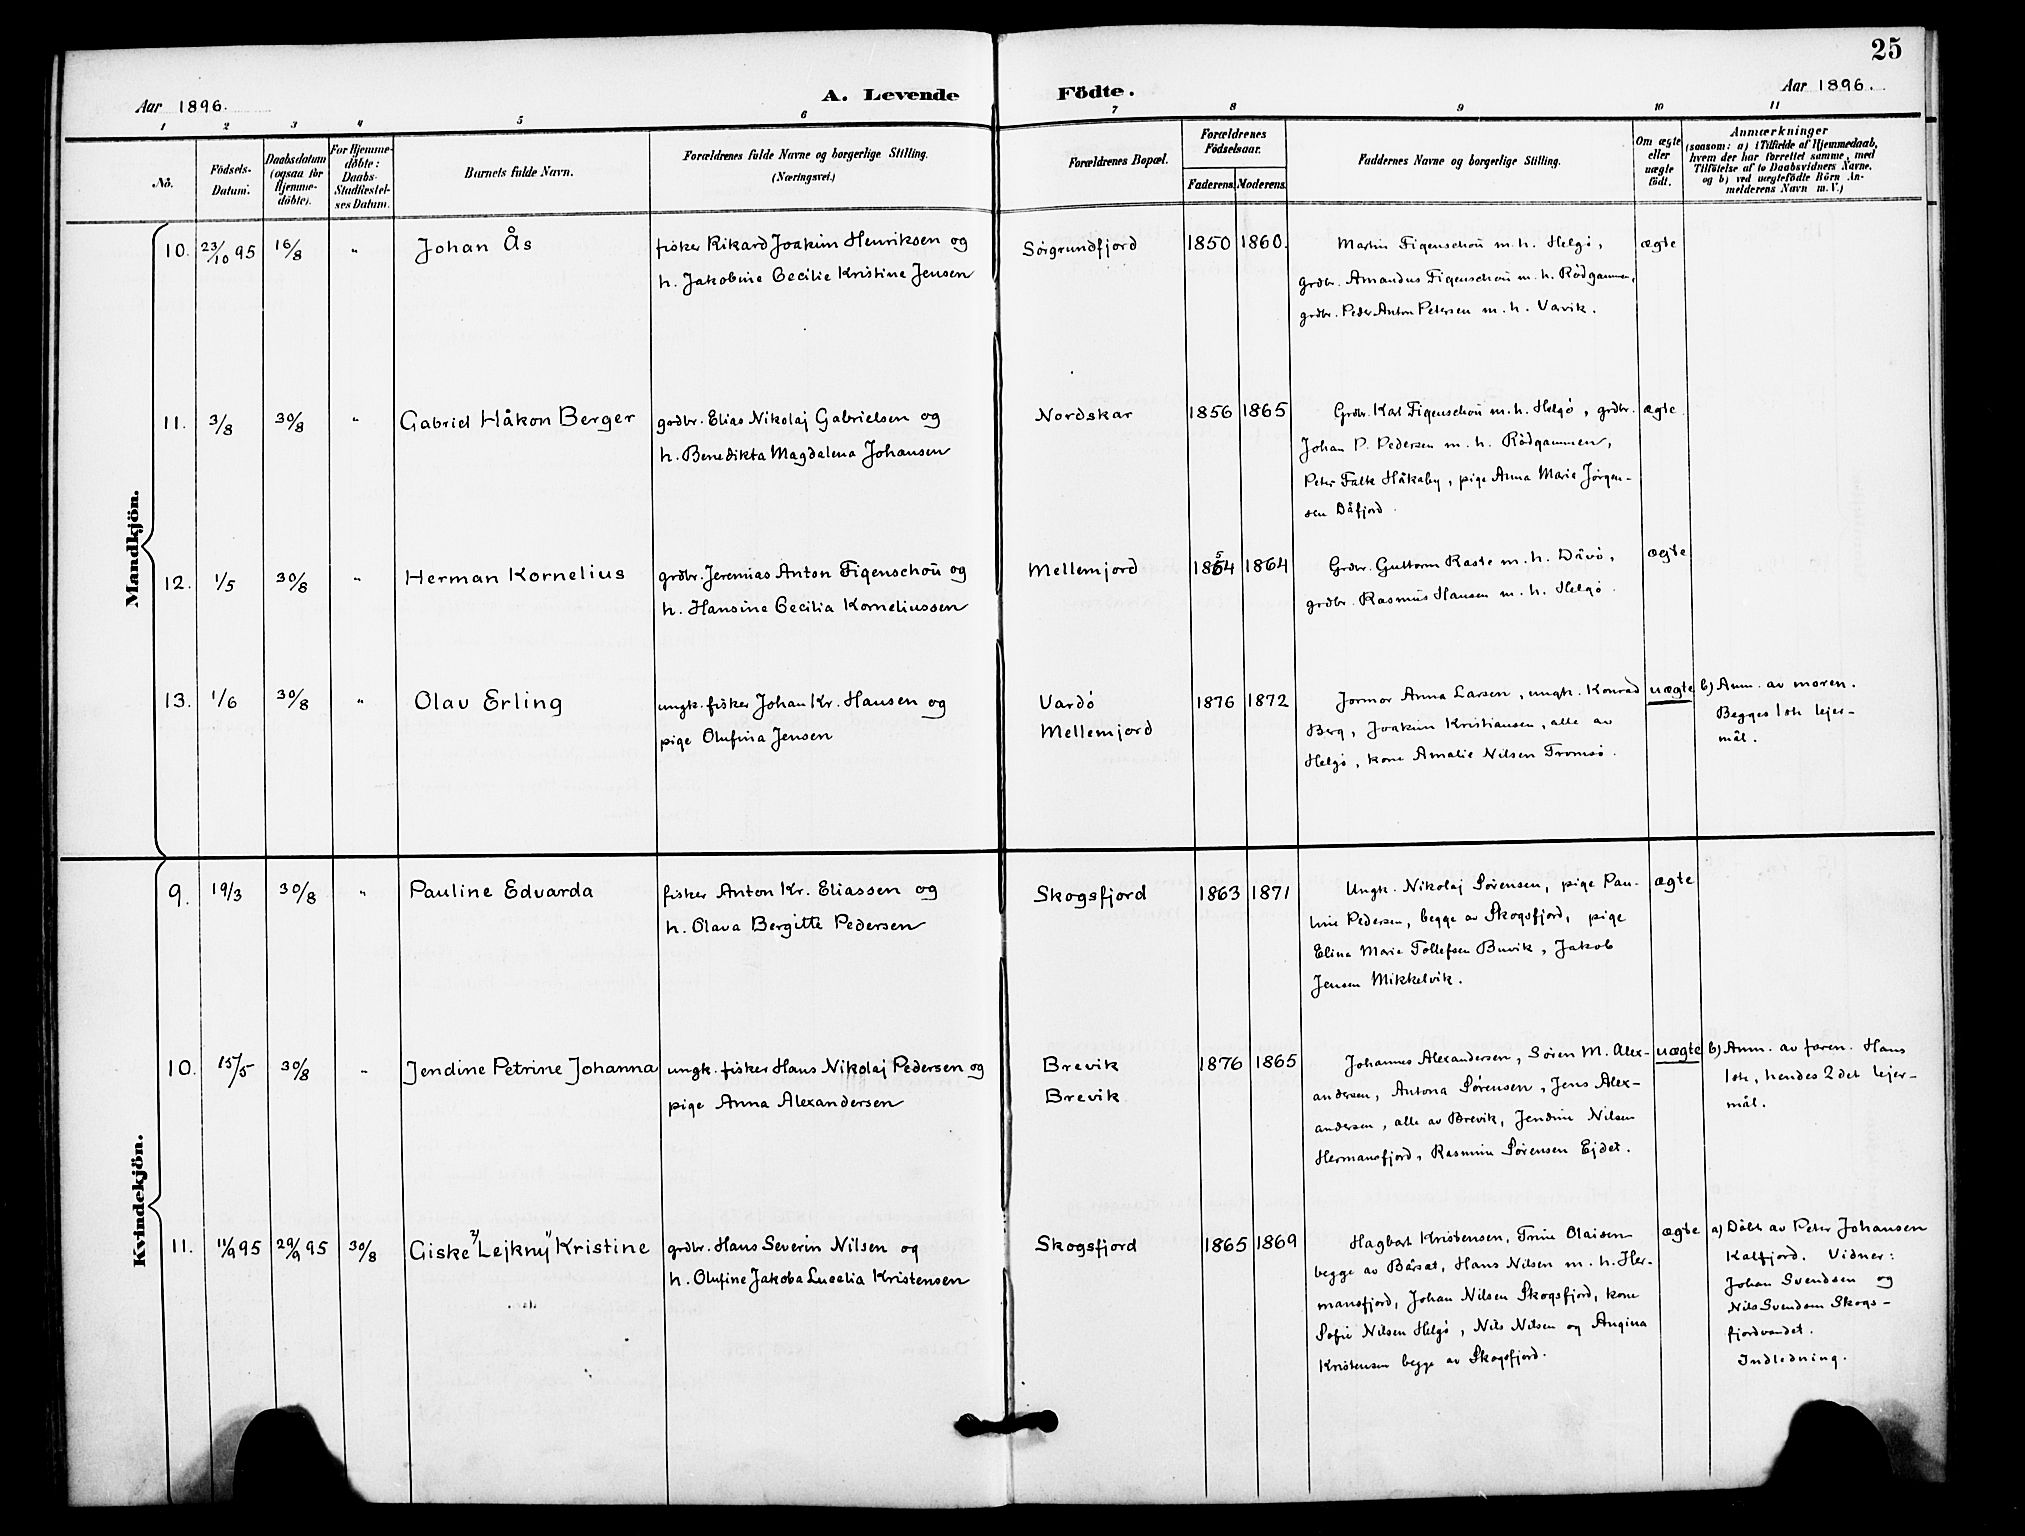 25
Aar 1896.
A. Levende Födte.
Aar 1896.
1 2 3 4 5 6 7 8 9 10 11
Nō.
Födsels-
Datum.
Daabsdatum
(ogsaa for
Hjemme-
döbte).
For Hjemme-
döbte:
Daabs-
Stadfæstel-
ses Datum.
Barnets fulde Navn.
Forældrenes fulde Navne og borgerlige Stilling.
(Næringsvei.)
Forældrenes Bopæl.
Forældrenes
Födselsaar.
Faderens. Moderens.
Faddernes Navne og borgerlige Stilling.
Om ægte
eller
uægte
födt.
Anmærkninger
(saasom: a) i Tilfælde af Hjemmedaab,
hvem der har forrettet samme, med
Tilföielse af to Daabsvidners Navne,
og b) ved uægtefödte Börn An-
melderens Navn m. V.)
Mandkjön.
10. 23/10 95 16/8 " Johan Ås
fisker Rikard Joakim Henriksen og
h. Jakobine Cecilie Kristine Jensen
Sörgrundfjord 1850 1860.
Martin Figenschou m. h. Helgö,
grdbr. Amandus Figenschou m. h. Rödgammen,
grdbr. Peder Anton Petersen m. h. Vavik.
ægte
11. 3/8 30/8 " Gabriel Håkon Berger
grdbr. Elias Nikolaj Gabrielsen og
h. Benedikta Magdalena Johansen
Nordskar 1856 1865
Grdbr. Karl Figenschou m. h. Helgö, grdbr.
Johan P. Pedersen m. h. Rödgammen,
Peter Falk Håkaby, pige Anna Marie Jörgen-
sen Dåfjord.
ægte
12. 1/5 30/8 " Herman Kornelius
grdbr. Jeremias Anton Figenschou og
h. Hansine Cecilia Korneliussen
Mellemjord 1854 1864
Grdbr. Guttorm Raste m. h. Dåvö,
grdbr. Rasmus Hansen m. h. Helgö.
ægte
13. 1/6 30/8 " Olav Erling
ungk. fisker Johan Kr. Hansen og
pige Olufina Jensen
Vardö
Mellemjord
1876 1872
Jormor Anna Larsen, ungk. Konrad
Berg, Joakim Kristiansen, alle av
Helgö, kone Amalie Nilsen Tromsö.
uægte
b) Anm. av moren.
Begges 1ste lejer-
mål.
Kvindekjön.
9. 19/3 30/8 " Pauline Edvarda
fisker Anton Kr. Eliassen og
h. Olava Bergitte Pedersen
Skogsfjord 1863 1871
Ungk. Nikolaj Sörensen, pige Pau-
line Pedersen, begge av Skogsfjord, pige
Elina Marie Tollefsen Buvik, Jakob
Jensen Mikkelvik.
ægte
10. 15/5 30/8 " Jendine Petrine Johanna
ungk. fisker Hans Nikolaj Pedersen og
pige Anna Alexandersen
Brevik
Brevik
1876 1865
Johannes Alexandersen, Sören M. Alex-
andersen, Antona Sörensen, Jens Alex-
andersen, alle av Brevik, Jendine Nilsen
Hermansfjord, Rasmine Sörensen Ejdet.
uægte
b) Anm. av faren. Hans
1ste, hendes 2det lejer-
mål.
11. 11/9 95 29/9 95 30/8 Giske "Lejkny" Kristine
grdbr. Hans Severin Nilsen og
h. Olufine Jakoba Lucelia Kristensen
Skogsfjord 1865 1869
Hagbart Kristensen, Trine Olaisen
begge av Bårset, Hans Nilsen m. h. Her-
mansfjord, Johan Nilsen Skogsfjord, kone
Sofie Nilsen Helgö, Nils Nilsen og Angina
Kristensen begge av Skogsfjord.
ægte
a) Döbt av Peter Johansen
Kalfjord. Vidner:
Johan Svendsen og
Nils Svendsen Skogs-
fjordvandet.
Indledning.